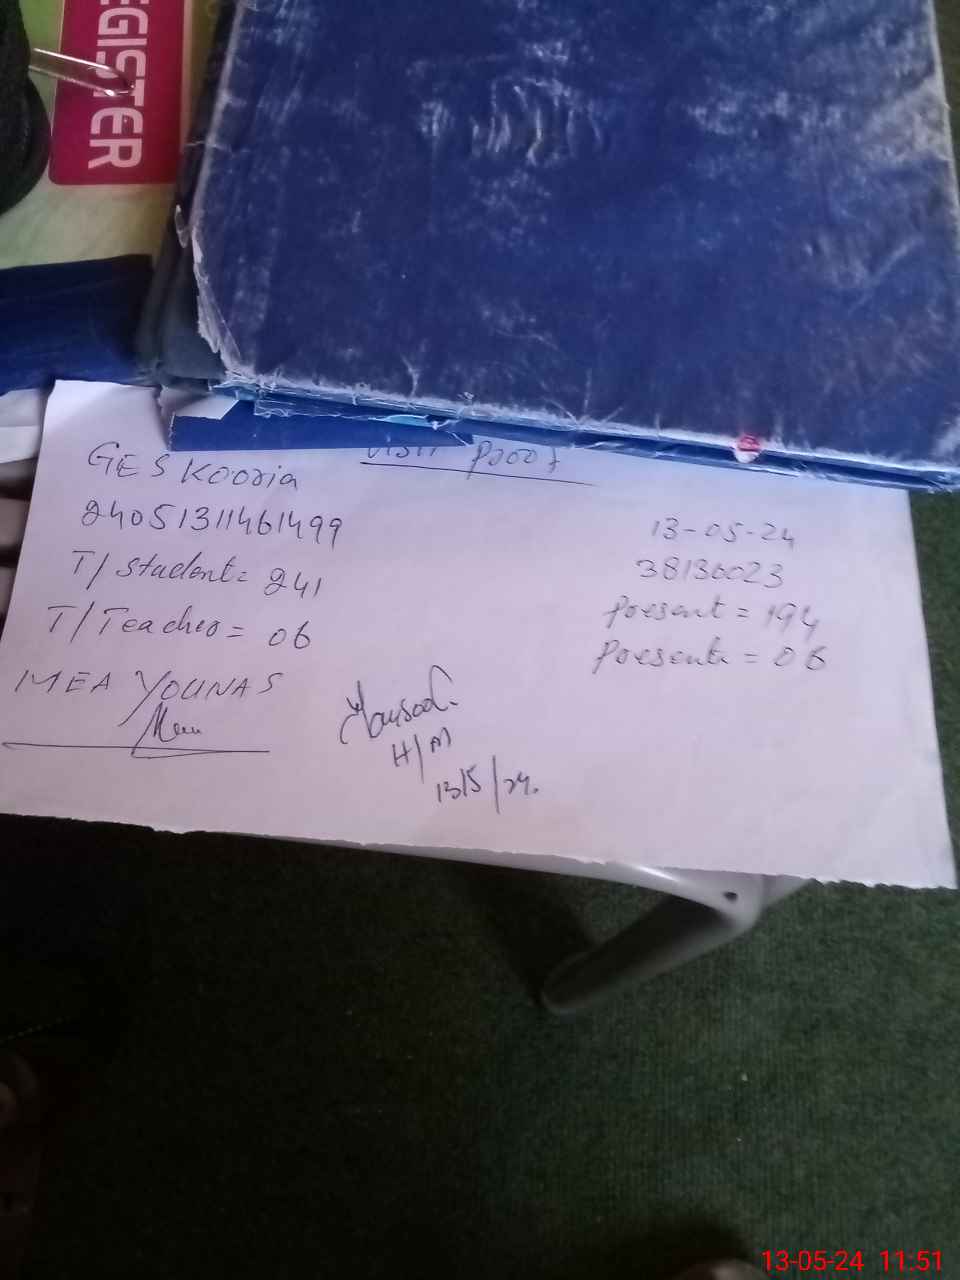 REGISTER
Visit Proof
GES Kooria
24051311461499
T/Student = 241
T/Teacher = 06
MEA YOUNAS
13-05-24
38130023
Present = 194
Present = 06
H/M
13/5/24.
13-05-24 11:51